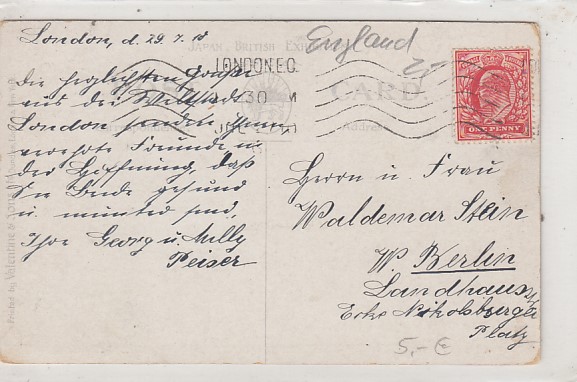 London, d. 29.7.10
Die herzlichsten Grüße
aus der Weltstadt
London senden Ihnen
verehrte Freunde in
der Hoffnung, daß
Sie Beide gesund
u. munter sind,
Ihre Georg u. Milly
Peiser
England
JAPAN BRITISH
LONDON.E.C.
30
CARD
ONE PENNY
Address
Herrn u. Frau
Waldemar Stein
W. Berlin
Landhausstr
Ecke Nikolsburger
Platz
5,- €
Printed by VALENTINE &